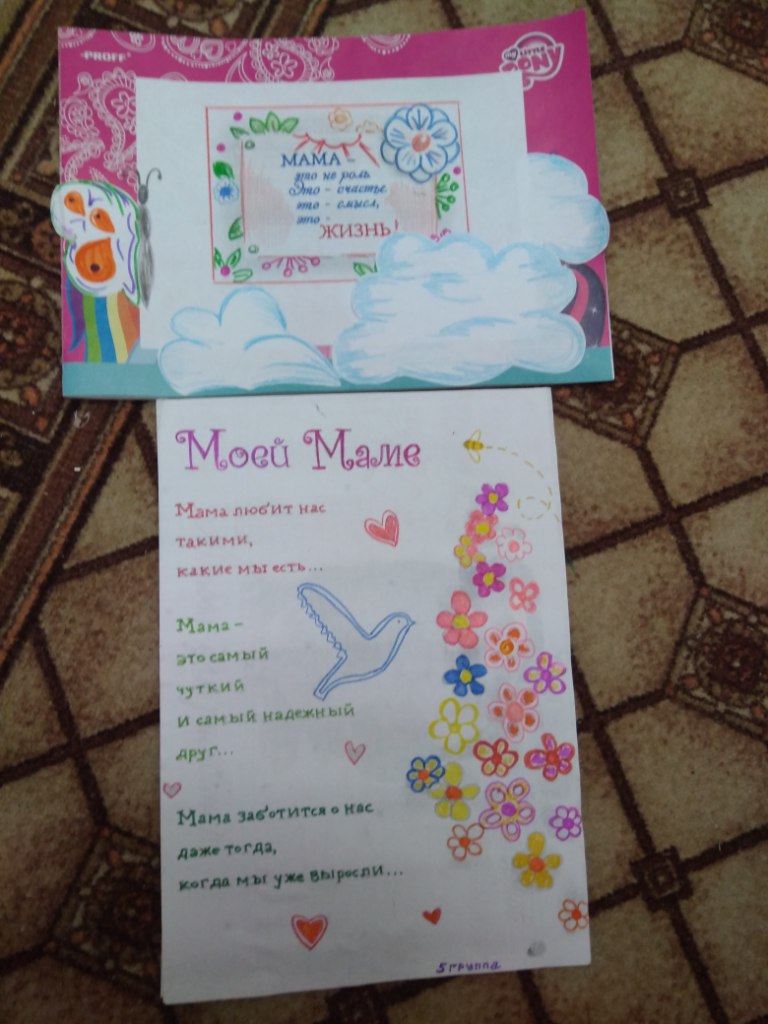 PROFF
MY LITTLE
PONY
МАМА -
это не роль
Это - счастье
это - смысл,
это -
ЖИЗНЬ!
Моей Маме
Мама любит нас
такими,
какие мы есть...
Мама -
это самый
чуткий
и самый надежный
друг...
Мама заботится о нас
даже тогда,
когда мы уже выросли...
5 группа